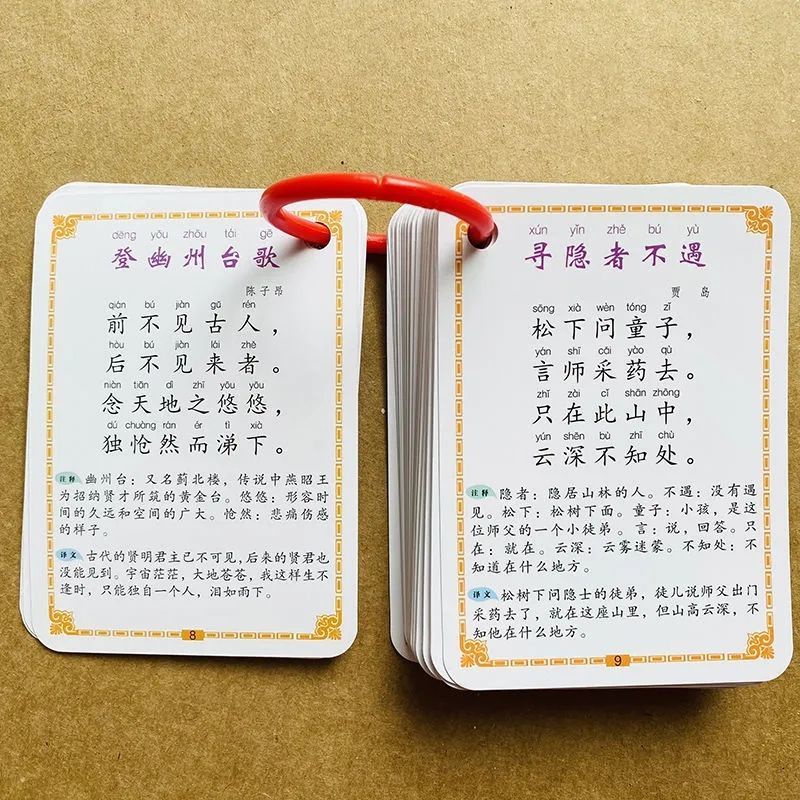 dēng yōu zhōu tái gē
登幽州台歌
陈子昂
qián bú jiàn gǔ rén
前不见古人，
hòu bú jiàn lái zhě
后不见来者。
niàn tiān dì zhī yōu yōu
念天地之悠悠，
dú chuàng rán ér tì xià
独怆然而涕下。
注释 幽州台：又名蓟北楼，传说中燕昭王
为招纳贤才所筑的黄金台。悠悠：形容时
间的久远和空间的广大。怆然：悲痛伤感
的样子。
译文 古代的贤明君主已不可见，后来的贤君也
没能见到。宇宙茫茫，大地苍苍，我这样生不
逢时，只能独自一个人，泪如雨下。
8
xún yǐn zhě bú yù
寻隐者不遇
贾 岛
sōng xià wèn tóng zǐ
松下问童子，
yán shī cǎi yào qù
言师采药去。
zhǐ zài cǐ shān zhōng
只在此山中，
yún shēn bù zhī chù
云深不知处。
注释 隐者：隐居山林的人。不遇：没有遇
见。松下：松树下面。童子：小孩，是这
位师父的一个小徒弟。言：说，回答。只
在：就在。云深：云雾迷蒙。不知处：不
知道在什么地方。
译文 松树下问隐士的徒弟，徒儿说师父出门
采药去了，就在这座山里，但山高云深，不
知他在什么地方。
9